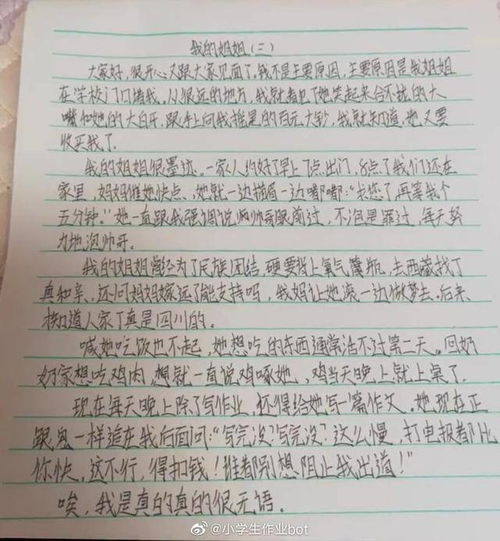 我的姐姐(二)
大家好,很开心又跟大家见面了,我不是主要原因,主要原因是我姐姐
在学校门口堵我。从很远的地方,我就看见了她笑起来合不拢的大
嘴和她的大白牙,跟手上向我摇晃的百元大钞,我就知道,她又要
收买我了。
我的姐姐很墨迹。一家人约好了早上7点出门,8点了我们还在
家里,妈妈催她快点,她就一边描眉一边嘟嘟:“快您了,再等我个
五分钟。”她一直跟我强调说帅哥眼前过,不泡是罪过,每天努
力地泡帅哥。
我的姐姐曾经为了民族团结,硬要背上氧气罐瓶,去西藏找丁
真和亲,还问妈妈嫁远了能支持吗,我妈让她滚一边做梦去,后来
才知道人家丁真是四川的。
喊她吃饭也不起,她想吃的东西通常活不过第二天。回奶
奶家想吃鸡肉,想就一直说鸡啄她,鸡当天晚上就上桌了。
现在每天晚上除了写作业,还得给她写一篇作文。她现在正
跟鬼一样追在我后面问:“写完没?写完没?这么慢,打电报都比
你快,这不行,得扣钱!谁都别想阻止我出道!”
唉,我是真的真的很无语。
@小学生作业bot